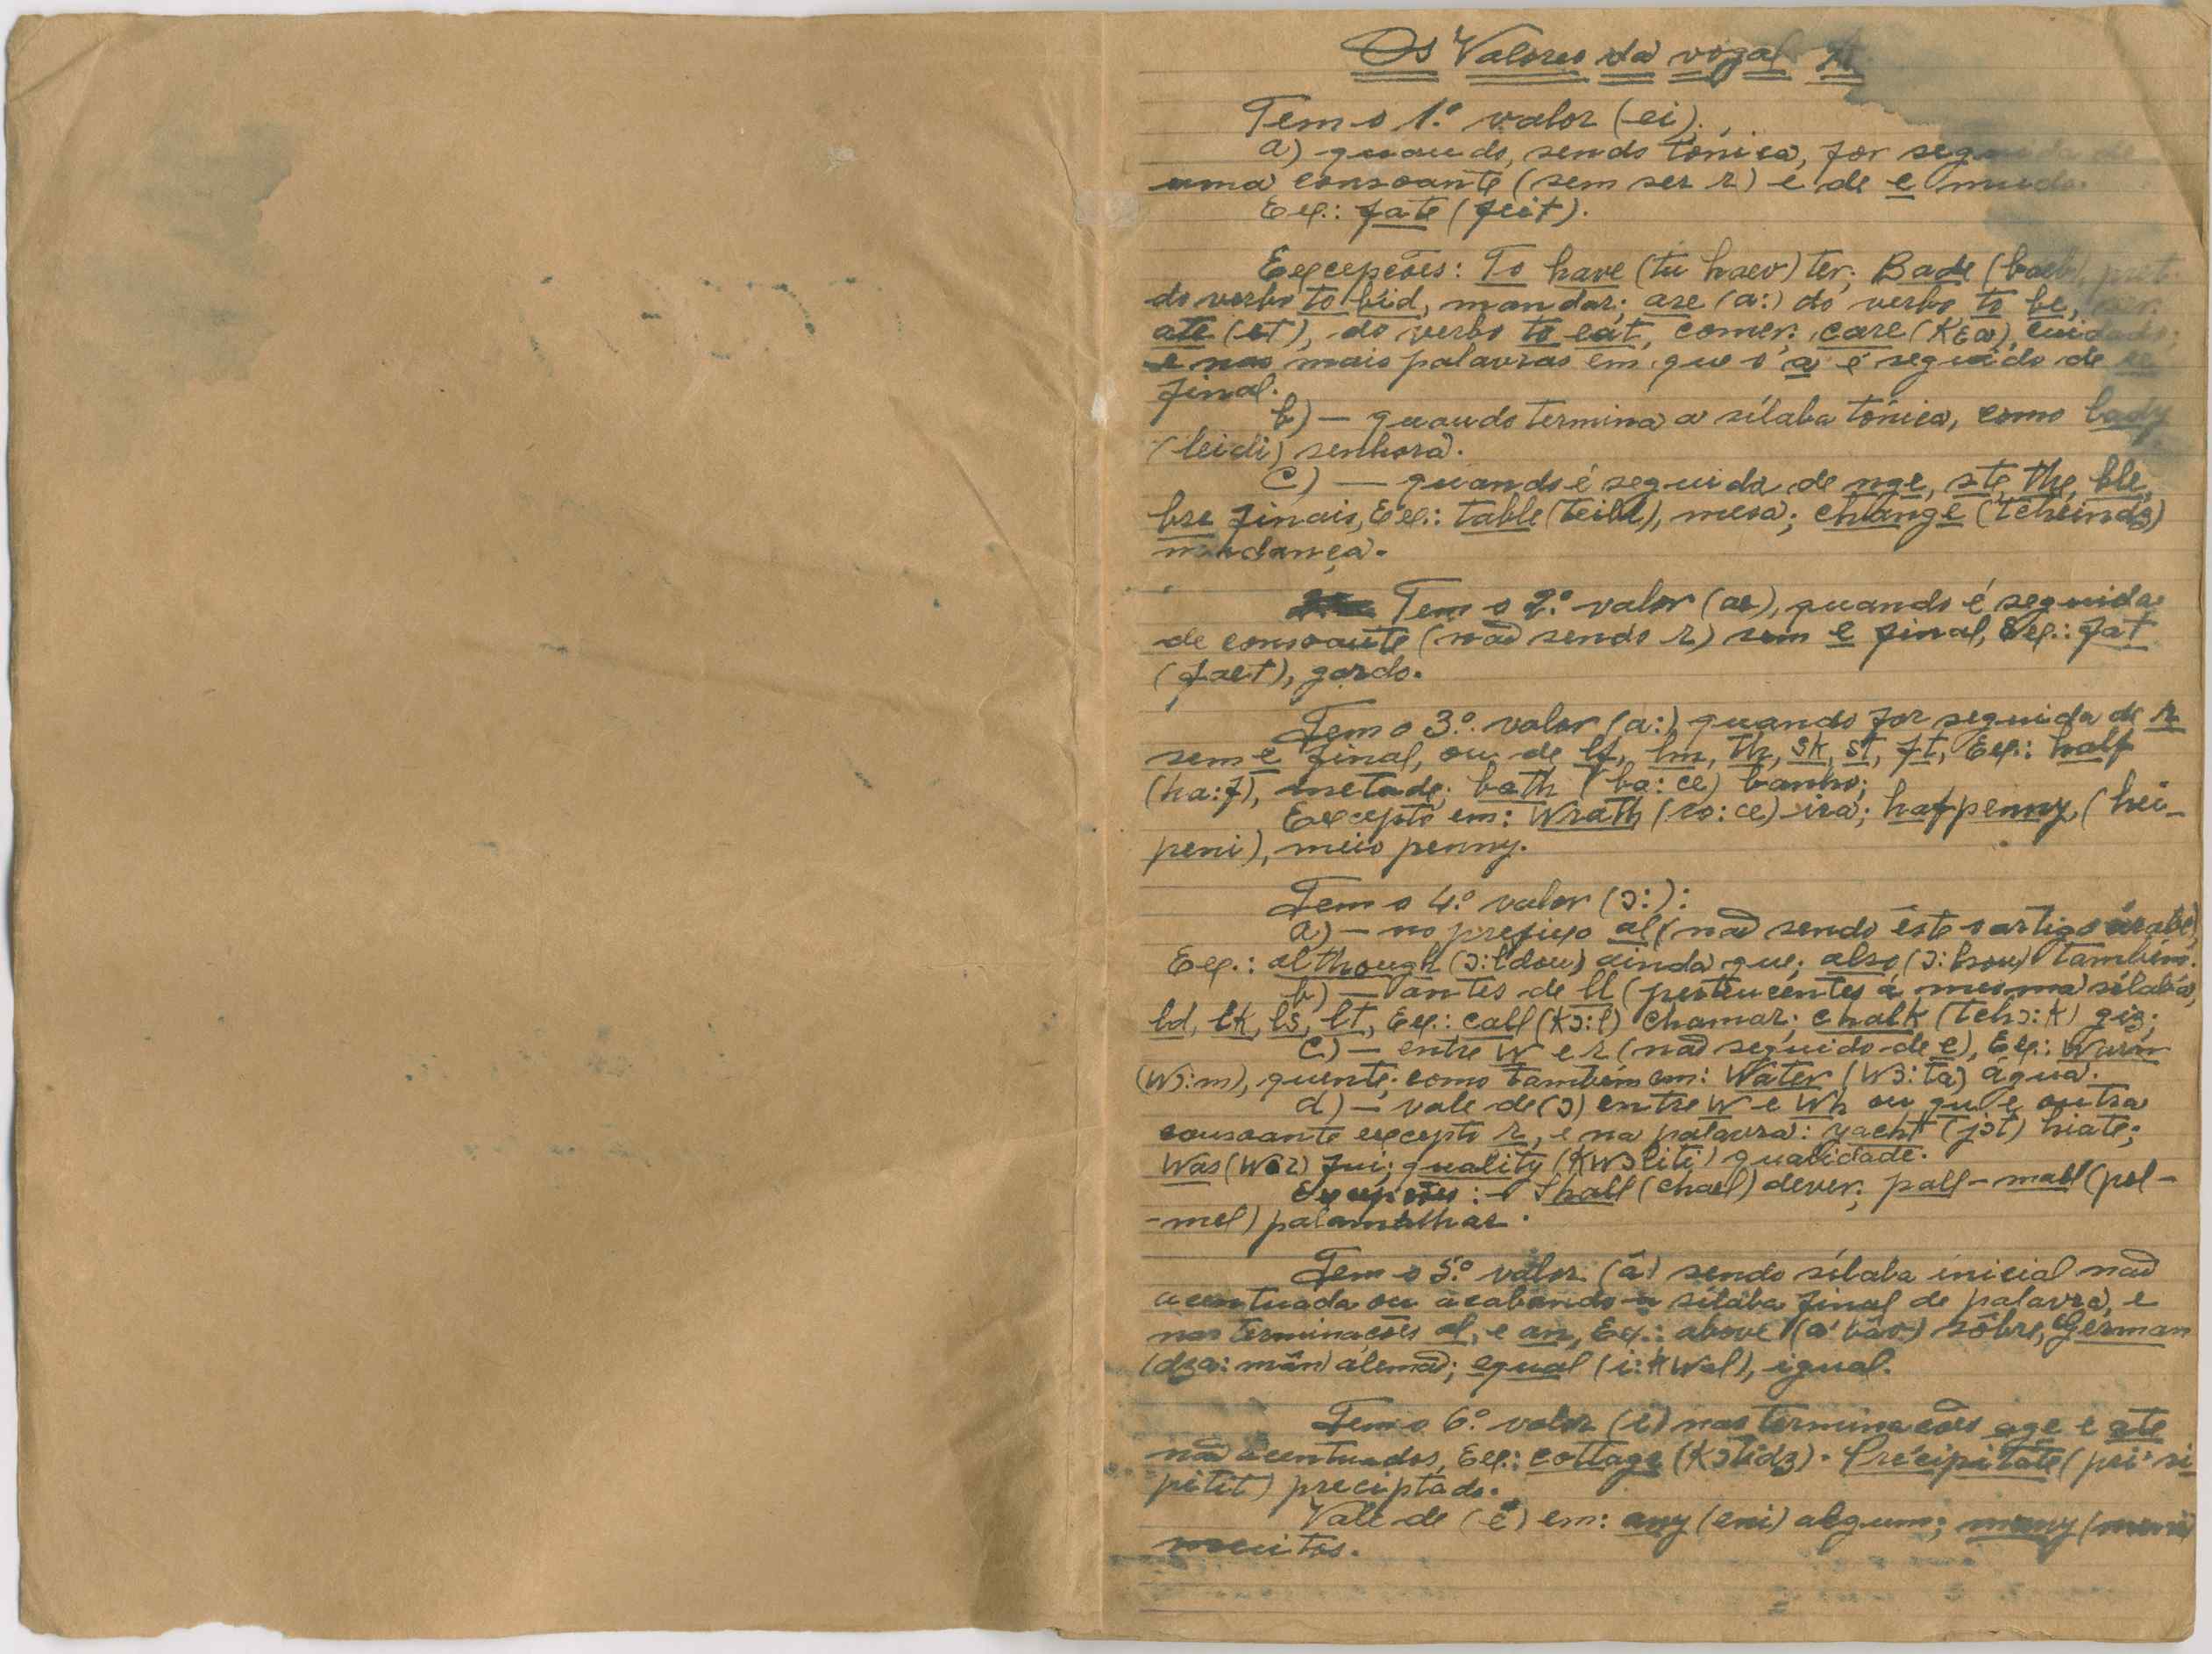 Os Valores da vogal A
Tem o 1.º valor (ei).
a) quando, sendo tónica, for seguida de
uma consoante (sem ser r) e de e mudo.
Ex.: fate (feit).
Excepções: To have (tu haev) ter; Bade (baed), pret.
do verbo to bid, mandar; are (a:) do verbo to be, ser;
ate (et), do verbo to eat, comer; care (Kɛa), cuidado;
e nas mais palavras em que o a é seguido de re
final.
b) — quando termina a sílaba tónica, como lady
(leidi) senhora.
c) — quando é seguida de nge, ste, the, ble,
bre finais, Ex.: table (teibl), mesa; change (tcheindʒ)
mudança.
Tem o 2.º valor (ae), quando é seguida
de consoante (não sendo r) sem e final, Ex.: fat
(faet), gordo.
Tem o 3.º valor (a:) quando for seguida de r
sem e final, ou de lf, lm, th, sk, st, ft, Ex.: half
(ha:f), metade; bath (ba:ce) banho;
Excepto em: Wrath (ro:ce) ira; hafpenny, (hei-
peni), meio penny.
Tem o 4.º valor (ɔ:):
a) — no prefixo al (não sendo êste o artigo árabe),
Ex.: although (ɔ:ldou) ainda que; also (ɔ:lsou) também.
b) — antes de ll (pertencentes á mesma sílaba),
ld, lk, ls, lt, Ex.: call (Kɔ:l) chamar; chalk (tchɔ:k) giz;
c) — entre w e r (não seguido de e), Ex.: Warm
(Wɔ:m), quente; como também em: Water (Wɔ:ta) água.
d) — vale de (ɔ) entre W e Wh ou qu e outra
consoante excepto r, e na palavra: yacht (jɔt) hiate;
Was (Woz) fui; quality (KWɔliti) qualidade.
Excepções: — Shall (chael) dever; pall-mall (pel-
-mel) palamalhar.
Tem o 5.º valor (â) sendo sílaba inicial não
acentuada ou acabando a sílaba final de palavra, e
nas terminações al, e an, Ex.: above (a'bâv) sôbre, German
(dʒa:mân) alemão; equal (i:KWal), igual.
Tem o 6.º valor (i) nas terminações age e ate
não acentuados, Ex.: cottage (Kɔtidʒ). Precipitate (pri'si
pitit) precipitado.
Vale de (é) em: any (eni) algum; many (meni)
muitos.